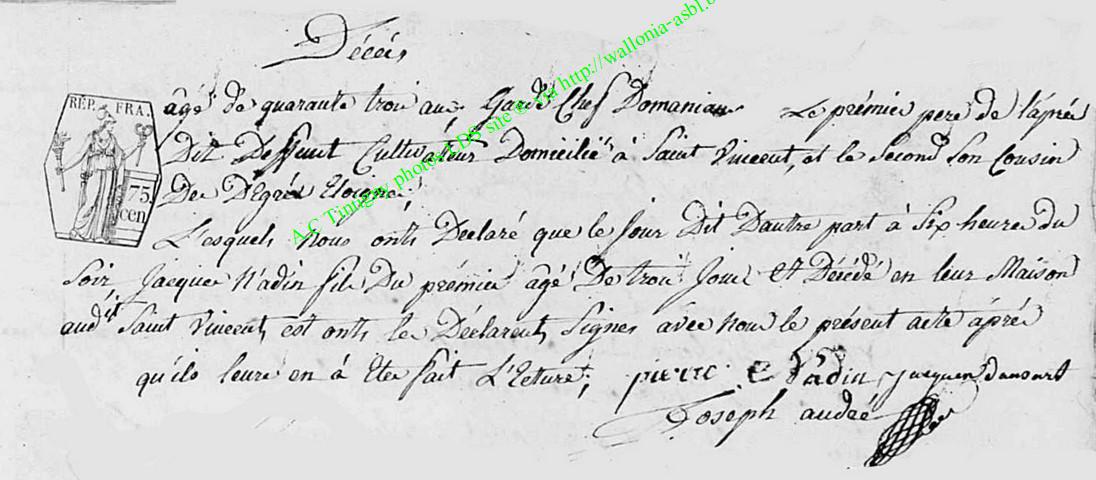 Décés
RÉP. FRA.
75 cen
âgé de quarante trois ans, Garde Chef Domaniau Le prémier pere de l'aprés
Dit Deffunt Cultivateur Domicilié à Saint Vincent, et le Second Son Cousin
De Degrés Eloigné,
L'esquels Nous onts Déclaré que le Jour Dit Dautre part à Six heures du
Soir Jacques Nadin fils Du prémier âgé De trois Jours Et Décédé en leur Maison
audit Saint Vincent, est onts les Déclarent Signes avec Nous le présent acte áprés
qu'ils leure en à Etée fait L'Eture, pierre Nadin Jacquen
Joseph andré
A.C Tintigny photos LDS site © via http://wallonia-asbl.